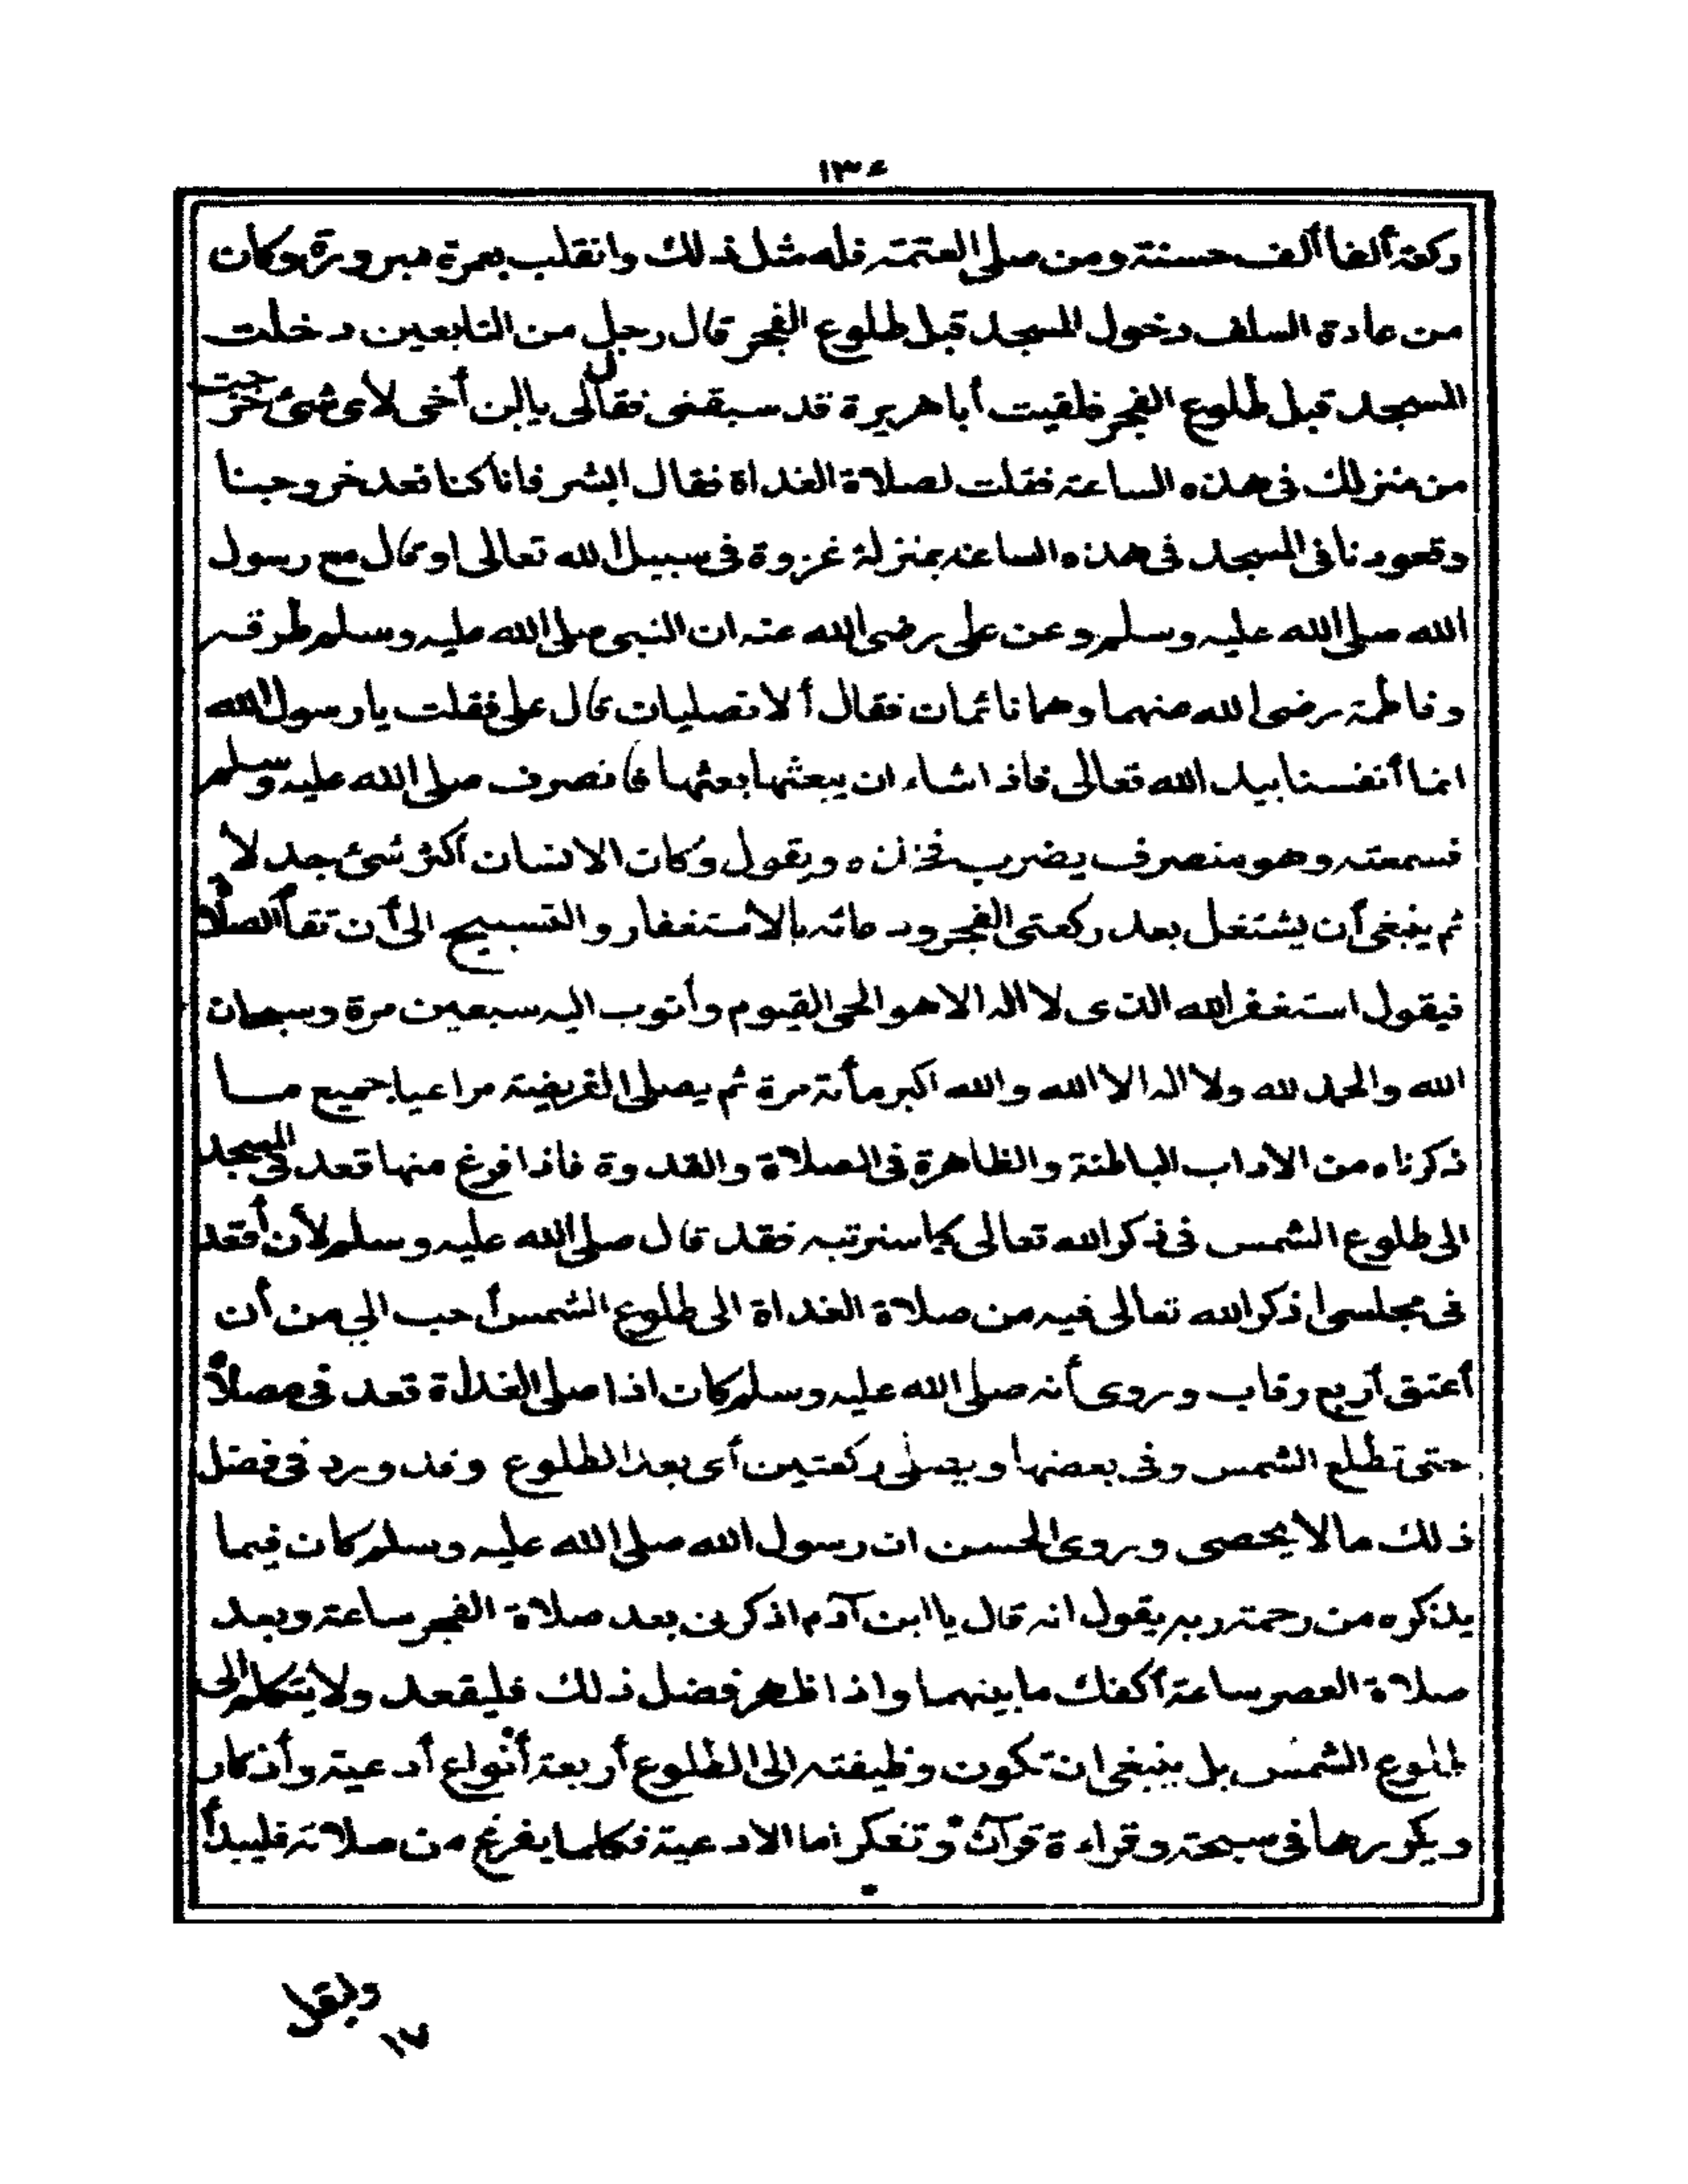 ١٣٤
ركعة ألفا ألف حسنة ومن صلى العتمة فله مثل ذلك وانقلب بعمرة مبرورة وكان
من عادة السلف دخول المسجد قبل طلوع الفجر قال رجل من التابعين دخلت
المسجد قبل طلوع الفجر فلقيت أبا هريرة قد سبقنى فقال لى يا ابن أخى لأى شئ خرجت
من منزلك فى هذه الساعة فقلت لصلاة الغداة فقال ابشر فانا كنا نعد خروجنا
وقعودنا فى المسجد فى هذه الساعة بمنزلة غزوة فى سبيل الله تعالى او قال مع رسول
الله صلى الله عليه وسلم وعن على رضى الله عنه ان النبى صلى الله عليه وسلم طرقه
وفاطمة رضى الله عنهما وهما نائمان فقال ألا تصليان قال على فقلت يا رسول الله
انما أنفسنا بيد الله تعالى فاذا شاء ان يبعثها بعثها فانصرف صلى الله عليه وسلم
فسمعته وهو منصرف يضرب فخذه ويقول وكان الانسان أكثر شئ جدلا
ثم ينبغى أن يشتغل بعد ركعتى الفجر ودعائه بالأستغفار والتسبيح الى أن تقام الصلاة
فيقول استغفر الله الذى لا اله الا هو الحى القيوم وأتوب اليه سبعين مرة وسبحان
الله والحمد لله ولا اله الا الله والله اكبر مأتة مرة ثم يصلى الفريضة مراعيا جميع ما
ذكرناه من الاداب الباطنة والظاهرة فى الصلاة والقدوة فاذا فرغ منها قعد فى المسجد
الى طلوع الشمس فى ذكر الله تعالى كما سنرتبه فقد قال صلى الله عليه وسلم لأن أقعد
فى مجلسى اذكر الله تعالى فيه من صلاة الغداة الى طلوع الشمس أحب الي من أن
أعتق أربع رقاب وروى أنه صلى الله عليه وسلم كان اذا صلى الغداة قعد فى مصلاه
حتى تطلع الشمس وفى بعضها ويصلى ركعتين أى بعد الطلوع وقد ورد فى فضل
ذلك ما لا يحصى وروى الحسن ان رسول الله صلى الله عليه وسلم كان فيما
يذكره من رحمة ربه يقول انه قال يا ابن آدم اذكرنى بعد صلاة الفجر ساعة وبعد
صلاة العصر ساعة أكفك ما بينهما واذا ظهر فضل ذلك فليقعد ولا يتكلم الى
طلوع الشمس بل ينبغى ان تكون وظيفته الى الطلوع أربعة أنواع أدعية وأذكار
ويكررها فى سبحة وقراءة قرآن وتفكر اما الادعية فكلما يفرغ من صلاته فليبدأ
وليقل
١٧